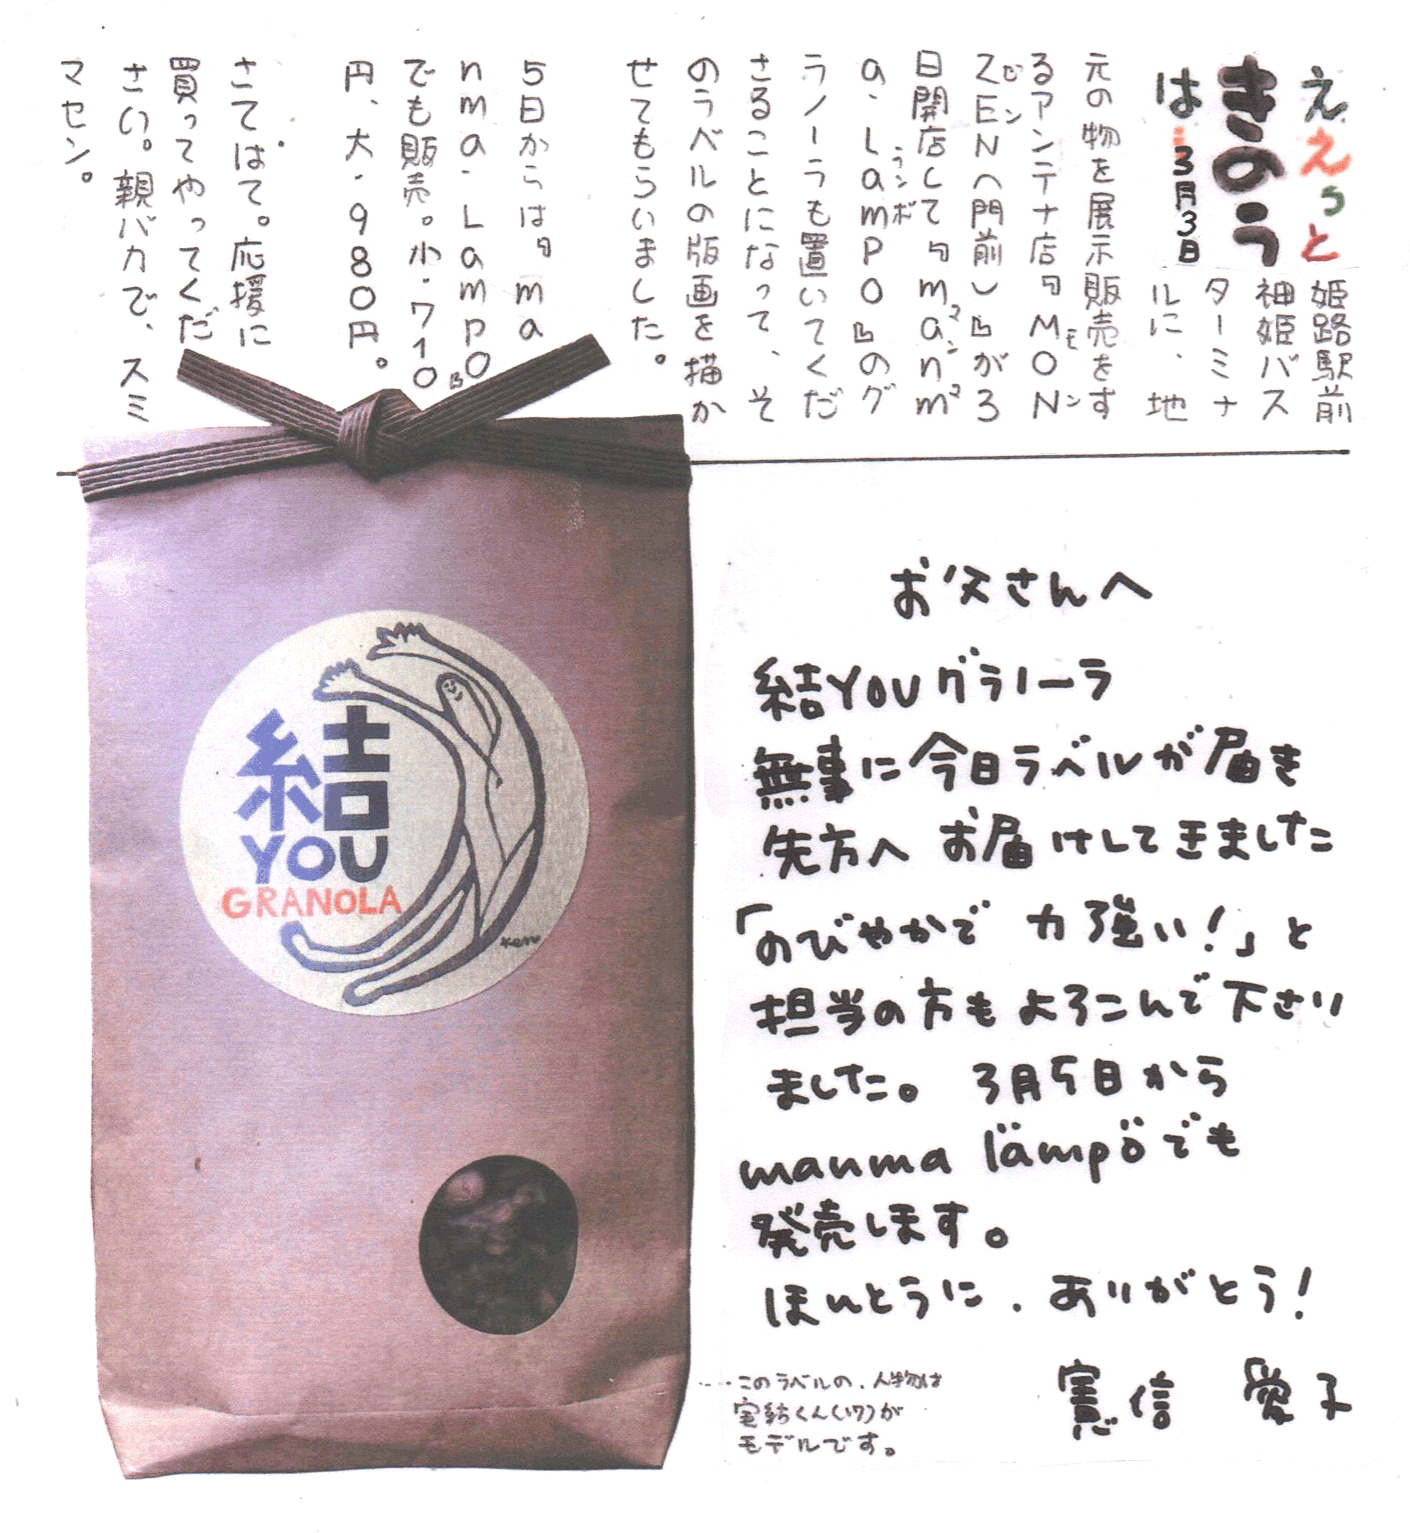 ええっと
きのう
は:3月3日
姫路駅前
神姫バス
ターミナ
ルに、地
元の物を展示販売をす
るアンテナ店『MON
モン
ZEN(門前)』が3
ゼン
日開店して『manm
マンマ
a・LamPO』のグ
ランポ
ラノーラも置いてくだ
さることになって、そ
のラベルの版画を描か
せてもらいました。
5日からは『ma
nma・Lampo』
でも販売。小・710
円、大・980円。
さてはて。応援に
買ってやってくだ
さい。親バカで、スミ
マセン。
結
YOU
GRANOLA
お父さんへ
結YOUグラノーラ
無事に今日ラベルが届き
先方へ お届けしてきました
「のびやかで 力強い!」と
担当の方もよろこんで下さり
ました。 3月5日から
manma lämpöでも
発売します。
ほんとうに、ありがとう!
憲信 愛子
このラベルの、人物は
くん(17)が
モデルです。